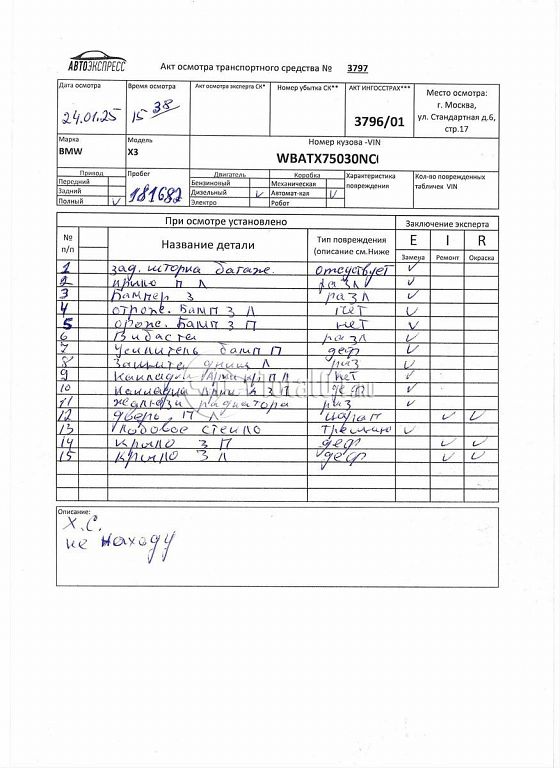 АВТОЭКСПРЕСС
Акт осмотра транспортного средства № 3797
Дата осмотра Время осмотра Акт осмотра эксперта СК* Номер убытка СК** АКТ ИНГОССТРАХ*** Место осмотра:
24.01.25 15 38 3796/01 г. Москва,
ул. Стандартная д.6,
стр.17
Марка Модель Номер кузова -VIN
BMW X3 WBATX75030NC
Привод Пробег Двигатель Коробка Характеристика повреждения Кол-во поврежденных табличек VIN
Передний 181682 Бензиновый Механическая
Задний Дизельный V Автомат-кая V
Полный V Электро Робот
При осмотре установлено Заключение эксперта
№ п/п Название детали Тип повреждения (описание см.Ниже E I R
Замена Ремонт Окраска
1 зад. шторка багаж. отсудствует V
2 П Л разл V
3 Бампер З разл V
4 Бамп З Л нет V
5 Бамп З П нет V
6 разл V
7 Усилитель бамп П деф V
8 Защита днищ Л раз V
9 нет V
10 З П деф V
11 жалюзи радиатора раз V
12 дверь царап V V
13 Лобовое стекло V
14 Крыло З П деф V V
15 Крыло З Л деф V V
Описание:
Х.С.
не находу